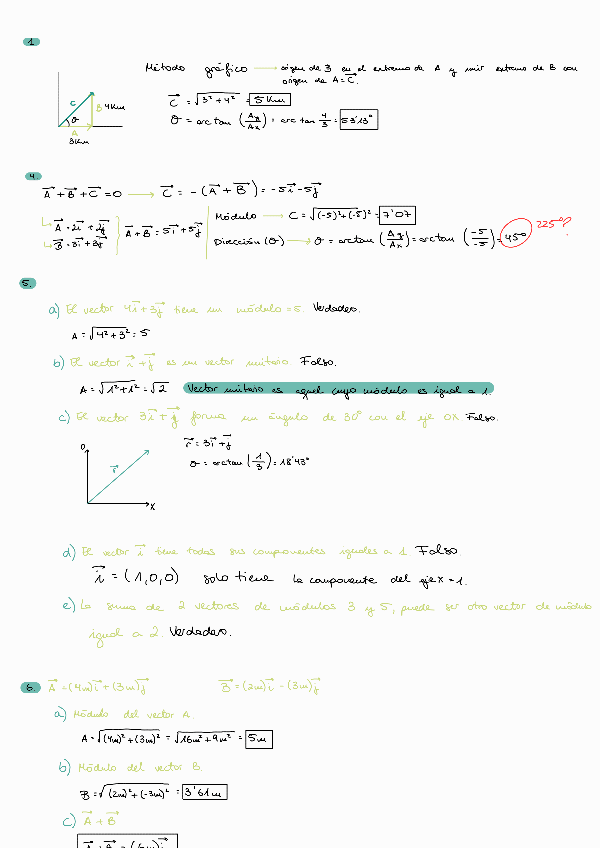 1
Método gráfico → origen de B en el extremo de A y unir extremo de B con
origen de A = C⃗.
C
B 4Km
θ
A
3Km
C⃗ = √(3² + 4²) = 5 Km
θ = arc tan (Ay/Ax) = arc tan 4/3 = 53'13°
4.
A⃗ + B⃗ + C⃗ = 0 → C⃗ = -(A⃗ + B⃗) = -5i⃗ - 5j⃗
A⃗ = 2i⃗ + 2j⃗
B⃗ = 3i⃗ + 3j⃗
A⃗ + B⃗ = 5i⃗ + 5j⃗
Módulo → C = √((-5)² + (-5)²) = 7'07
Dirección (θ) → θ = arctan (Ay/Ax) = arctan (-5/-5) = 45°
225°?
5.
a) El vector 4i⃗ + 3j⃗ tiene un módulo = 5. Verdadero.
A = √(4² + 3²) = 5
b) El vector i⃗ + j⃗ es un vector unitario Falso.
A = √(1² + 1²) = √2 Vector unitario es aquel cuyo módulo es igual a 1.
c) El vector 3i⃗ + j⃗ forma un ángulo de 30° con el eje OX Falso.
r⃗ = 3i⃗ + j⃗
θ = arctan (1/3) = 18'43°
0
r⃗
X
d) El vector i⃗ tiene todas sus componentes iguales a 1 Falso
i⃗ = (1,0,0) solo tiene la componente del eje x = 1.
e) La suma de 2 vectores de módulos 3 y 5, puede ser otro vector de módulo
igual a 2. Verdadero.
6. A⃗ = (4m)i⃗ + (3m)j⃗ B⃗ = (2m)i⃗ - (3m)j⃗
a) Módulo del vector A.
A = √((4m)² + (3m)²) = √(16m² + 9m²) = 5m
b) Módulo del vector B.
B = √((2m)² + (-3m)²) = 3'61m
c) A⃗ + B⃗
A⃗ + B⃗ = (6m)i⃗